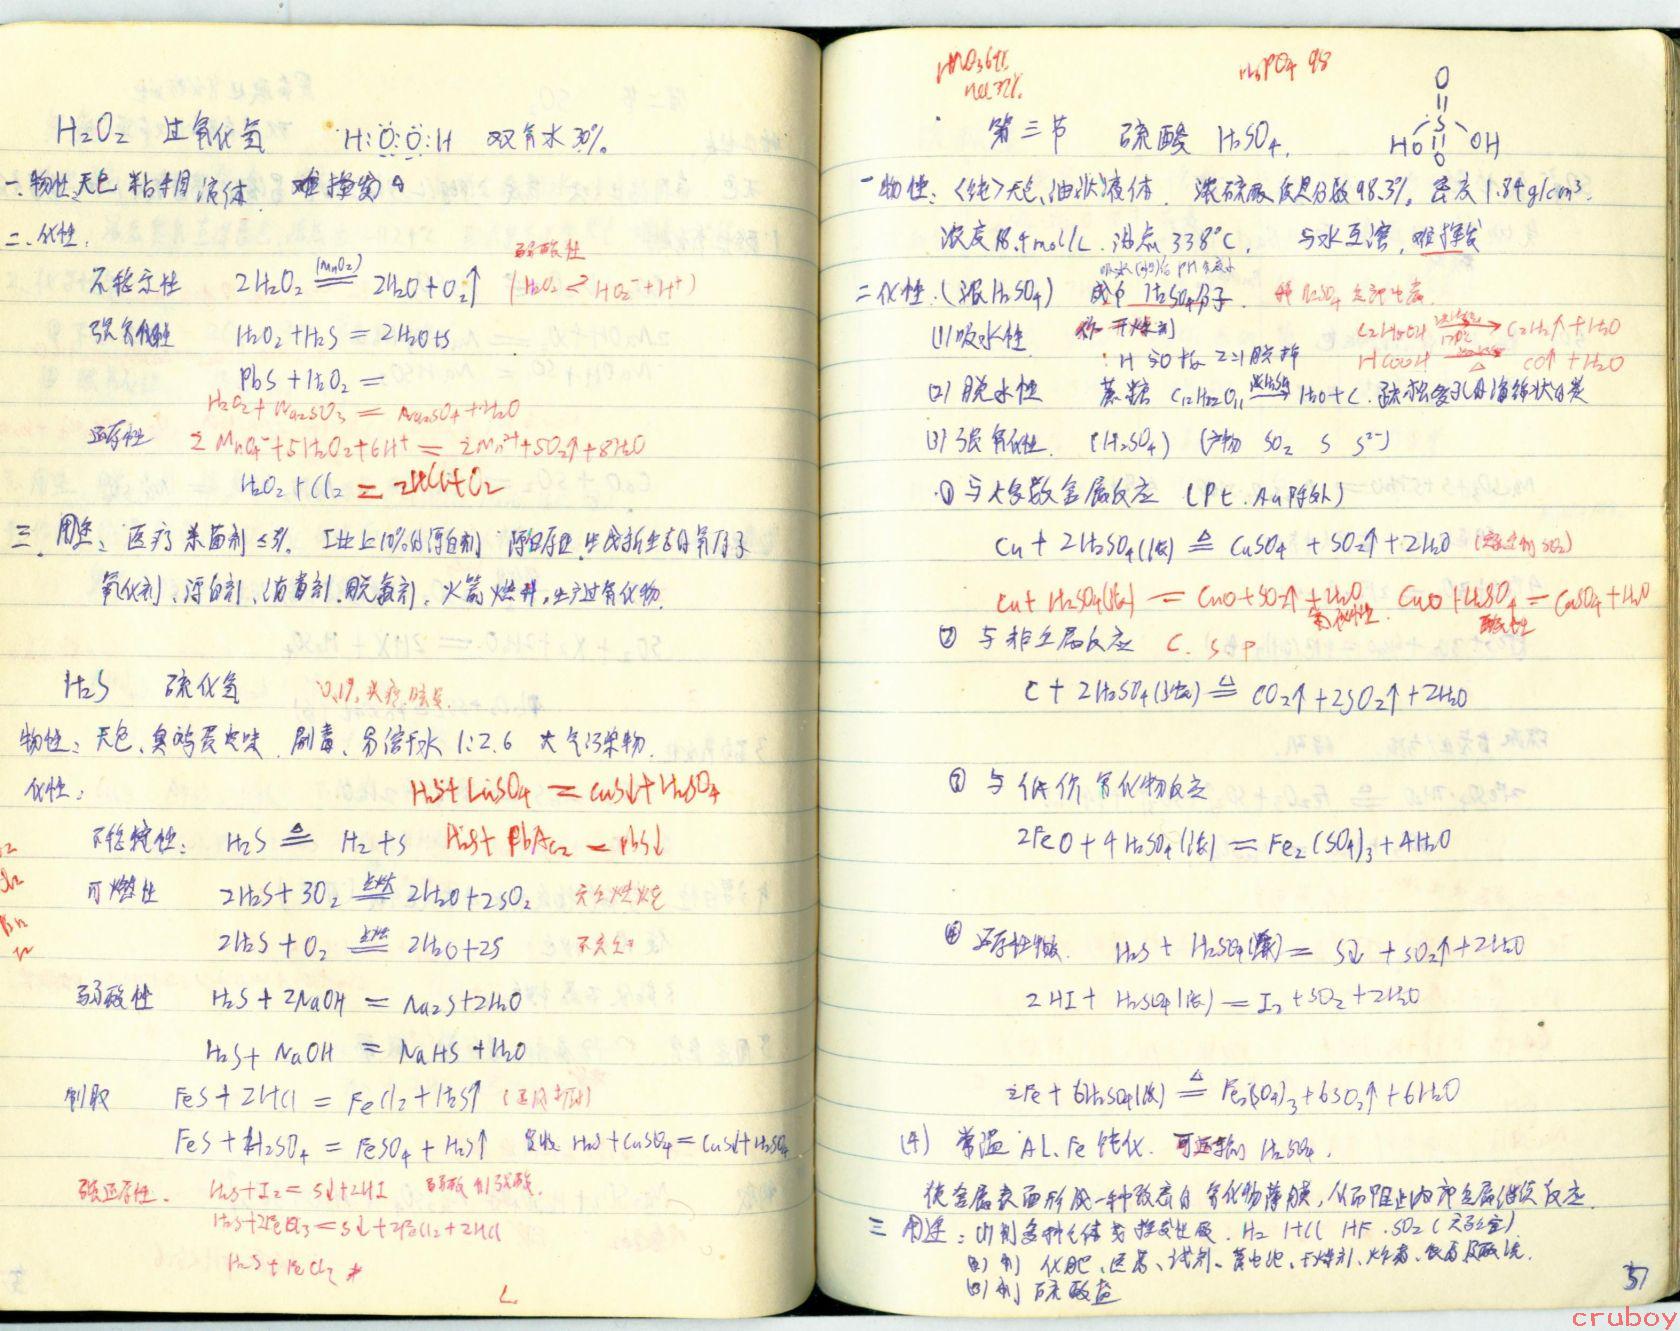 H₂O₂ 过氧化氢 H:Ö:Ö:H 双氧水30%.
一.物性:无色粘稠液体 难挥发
二.化性.
弱酸性
不稳定性 2H₂O₂ =(MnO₂)= 2H₂O+O₂↑ (H₂O₂ ⇌ HO₂⁻+H⁺)
强氧化性 H₂O₂+H₂S = 2H₂O+S
PbS+H₂O₂ =
H₂O₂+Na₂SO₃ = Na₂SO₄+H₂O
还原性 2MnO₄⁻+5H₂O₂+6H⁺ = 2Mn²⁺+5O₂↑+8H₂O
H₂O₂+Cl₂ = 2HCl+O₂
三.用途: 医疗杀菌剂≤3%. 工业上10%的漂白剂 生成新生态的氧原子
氧化剂、漂白剂、消毒剂、脱氯剂、火箭燃料,生产过氧化物.
H₂S 硫化氢
物性:无色、臭鸡蛋气味 剧毒、易溶于水 1:2.6 大气污染物.
化性: H₂S+CuSO₄ = CuS↓+H₂SO₄
不稳定性: H₂S =△= H₂+S H₂S+PbAc₂ — PbS↓
可燃性 2H₂S+3O₂ =点燃= 2H₂O+2SO₂ 完全燃烧
2H₂S+O₂ =点燃= 2H₂O+2S 不完全
弱酸性 H₂S+2NaOH = Na₂S+2H₂O
H₂S+NaOH = NaHS+H₂O
制取 FeS+2HCl = FeCl₂+H₂S↑
FeS+H₂SO₄ = FeSO₄+H₂S↑ 吸收 H₂S+CuSO₄=CuS↓+H₂SO₄
强还原性. H₂S+I₂=S↓+2HI 弱酸制强酸.
H₂S+2FeCl₃=S↓+2FeCl₂+2HCl
H₂S+FeCl₂ ≠
HNO₃ 69%
HCl 37%
H₃PO₄ 98
第三节 硫酸 H₂SO₄.
O
S
HO OH
O
一物性:<纯>无色、油状液体. 浓硫酸质量分数98.3%. 密度1.84g/cm³.
浓度18.4mol/L. 沸点338℃, 与水互溶,难挥发
二化性.(浓H₂SO₄) 成分H₂SO₄分子. 稀H₂SO₄
(1)吸水性 作干燥剂 HCOOH =△= CO↑+H₂O
:H 与O按2:1脱掉
(2)脱水性 蔗糖 C₁₂H₂₂O₁₁ =浓H₂SO₄= H₂O+C. 疏松多孔的海绵状的炭
(3)强氧化性. (H₂SO₄) (产物 SO₂ S S²⁻)
①与大多数金属反应 (Pt.Au除外)
Cu+2H₂SO₄(浓) =△= CuSO₄+SO₂↑+2H₂O
Cu+H₂SO₄(浓) = CuO+SO₂↑+H₂O CuO+H₂SO₄=CuSO₄+H₂O
氧化性. 酸性
②与非金属反应 C. S P
C+2H₂SO₄(浓) =△= CO₂↑+2SO₂↑+2H₂O
③与低价氧化物反应
2FeO+4H₂SO₄(浓) = Fe₂(SO₄)₃+4H₂O
④还原性物质 H₂S+H₂SO₄(浓) = S↓+SO₂↑+2H₂O
2HI+H₂SO₄(浓) = I₂+SO₂+2H₂O
2Fe+6H₂SO₄(浓) =△= Fe₂(SO₄)₃+6SO₂↑+6H₂O
(4) 常温 Al.Fe钝化. H₂SO₄.
使金属表面形成一种致密的氧化物薄膜,从而阻止内部金属继续反应.
三 用途:(1)制多种气体或挥发性酸. H₂ HCl HF. SO₂
(2)制 化肥、医药、试剂、蓄电池、干燥剂、炸药、农药及酸洗.
(3)制硫酸盐
51
cruboy